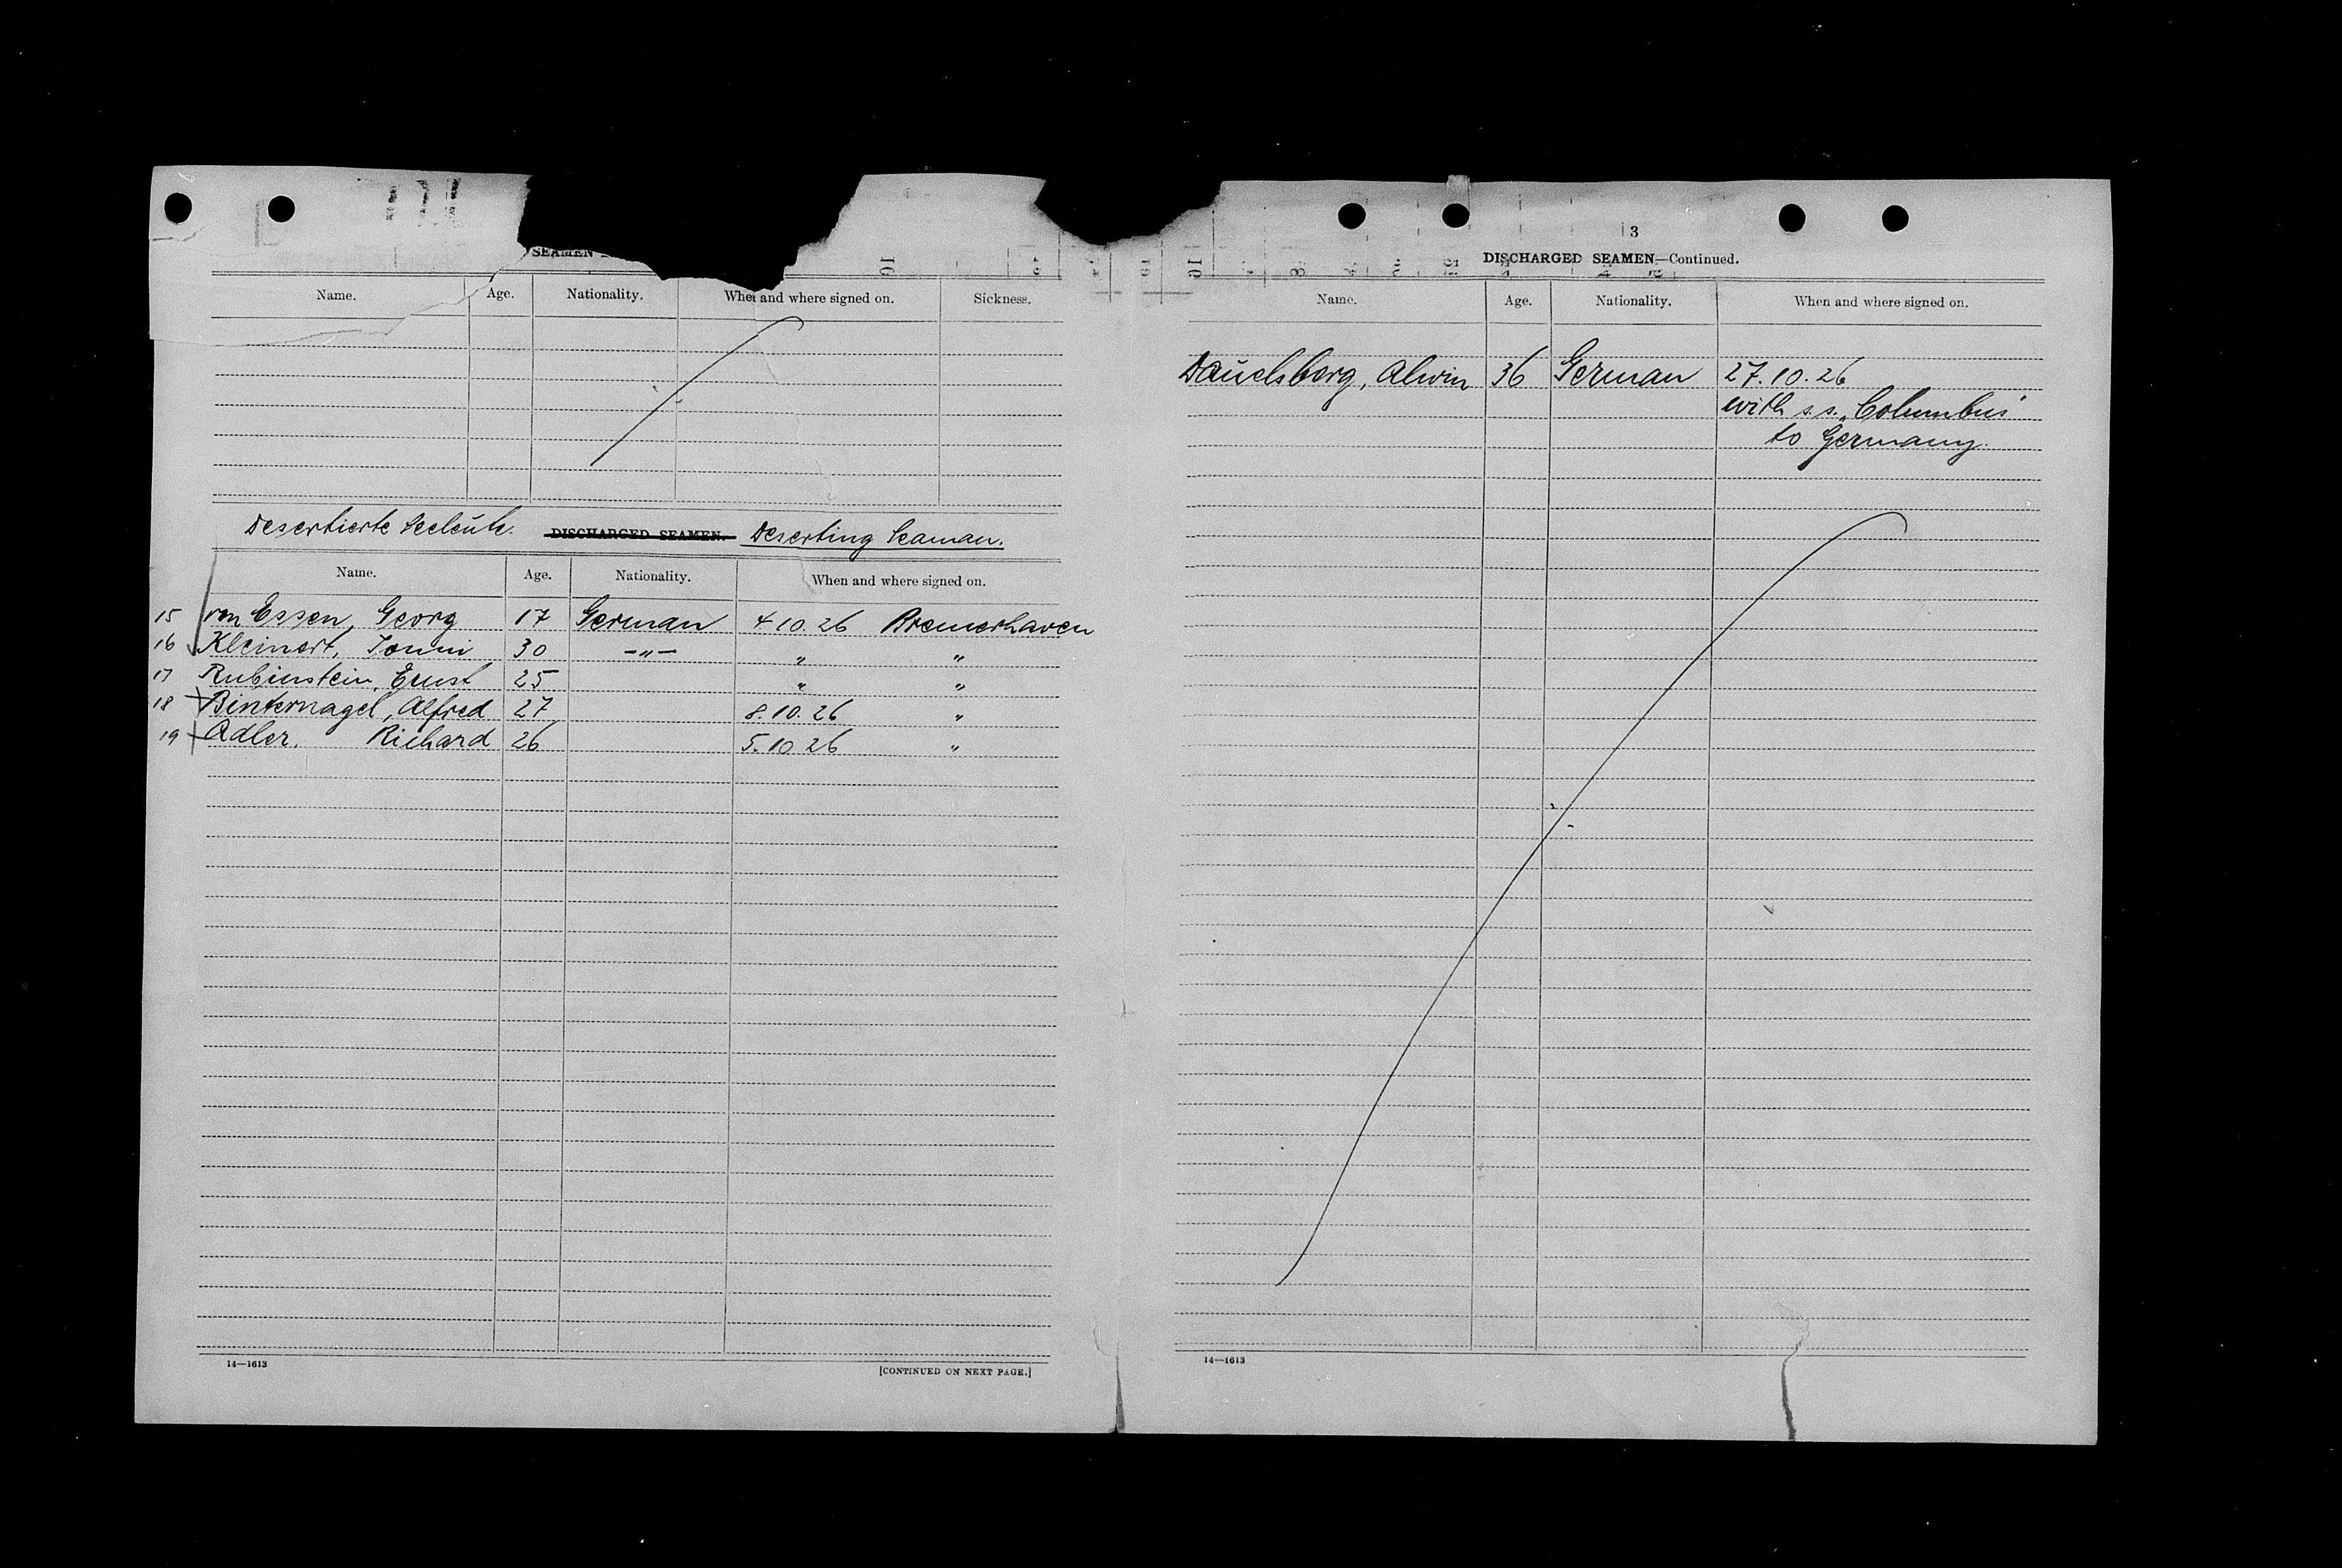 SEAMEN
Name. Age. Nationality. When and where signed on. Sickness.
Desertierte Seeleute. DISCHARGED SEAMEN. Deserting Seaman.
Name. Age. Nationality. When and where signed on.
15 von Essen, Georg 17 German 4 10. 26 Bremerhaven
16 Kleinert, Tonni 30 -"- " "
17 Rubinstein, Ernst 25 " "
18 Binternagel, Alfred 27 8. 10. 26 "
19 Adler, Richard 26 5. 10 26 "
14—1613
[CONTINUED ON NEXT PAGE.]
3
DISCHARGED SEAMEN—Continued.
Name. Age. Nationality. When and where signed on.
Dauelsberg, Alwin 36 German 27. 10. 26
with s.s. „Columbus"
to Germany.
14—1613